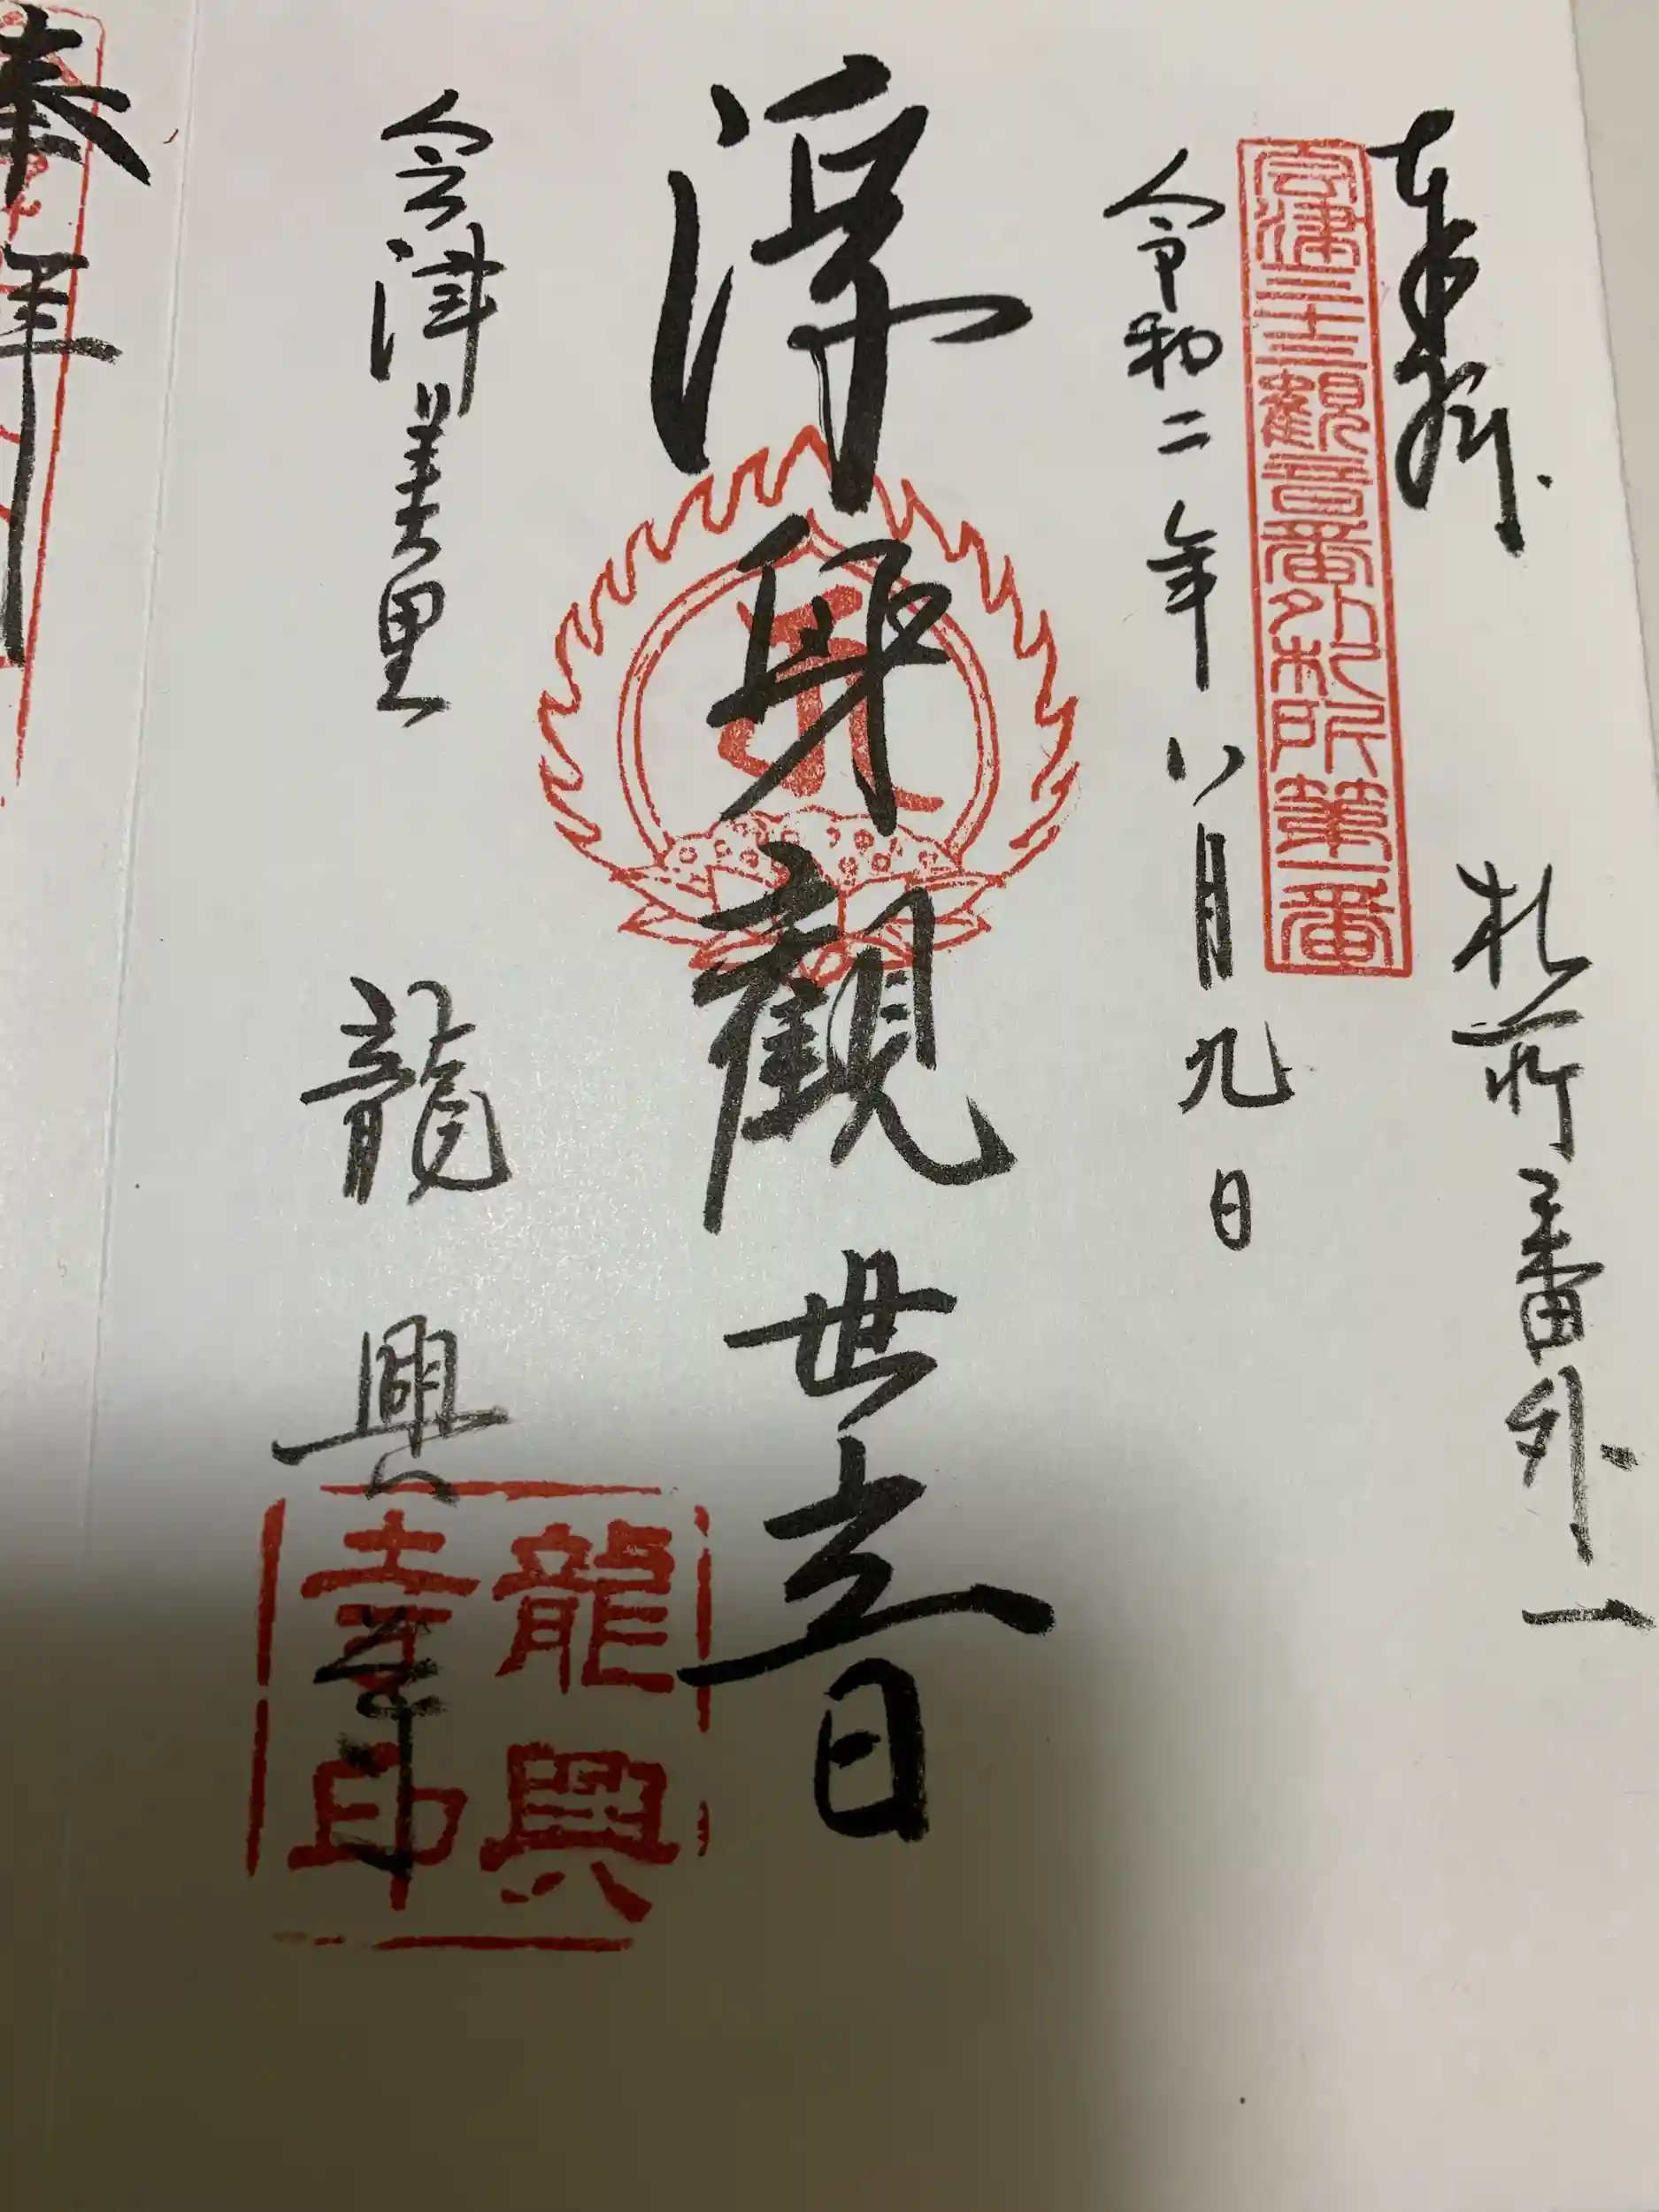 奉拝 札所番外一
会津三十三觀音番外札所第一番
令和二年八月九日
浮身觀世音
会津美里 龍興寺
龍興
寺印
奉拝